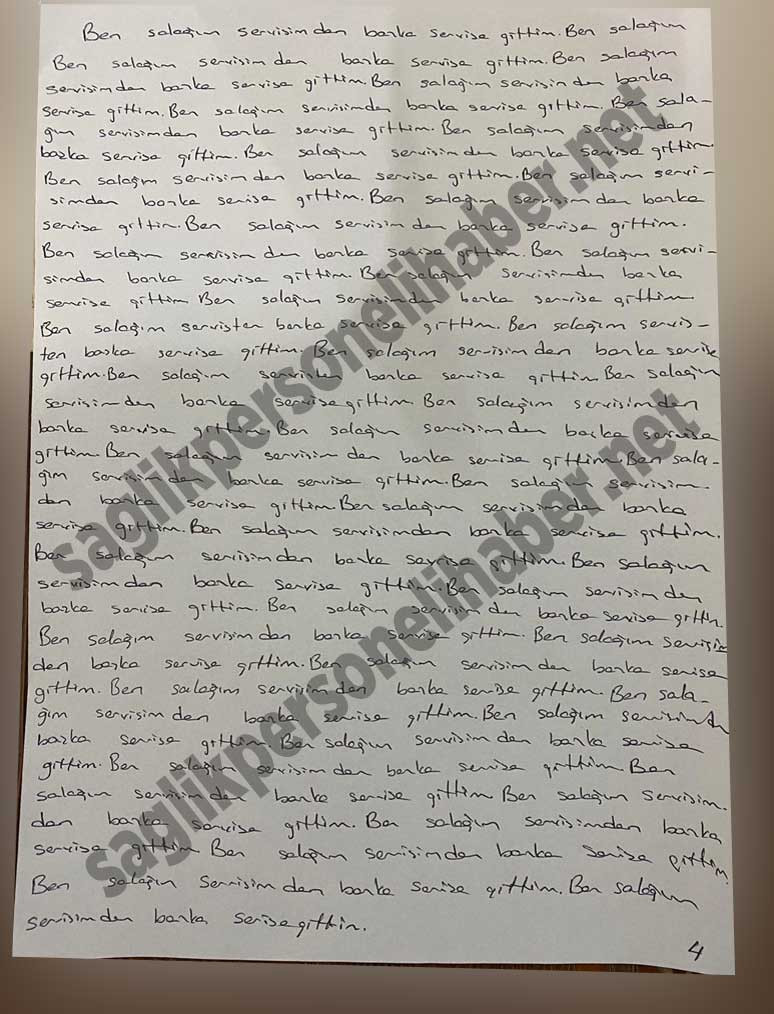 Ben salağım servisimden başka servise gittim. Ben salağım
Ben salağım servisimden başka servise gittim. Ben salağım
servisimden başka servise gittim. Ben salağım servisinden başka
servise gittim. Ben salağım servisimden başka servise gittim. Ben sala-
ğım servisimden başka servise gittim. Ben salağım servisimden
başka servise gittim. Ben salağım servisimden başka servise gittim.
Ben salağım servisimden başka servise gittim. Ben salağım servi-
simden başka servise gittim. Ben salağım servisimden başka
servise gittim. Ben salağım servisimden başka servise gittim.
Ben salağım servisimden başka servise gittim. Ben salağım servi-
simden başka servise gittim. Ben salağım servisimden başka
servise gittim Ben salağım servisimden başka servise gittim.
Ben salağım servisten başka servise gittim. Ben salağım servis-
ten başka servise gittim. Ben salağım servisimden başka servise
gittim. Ben salağım servisten başka servise gittim. Ben salağım
servisimden başka servise gittim. Ben salağım servisimden
başka servise gittim. Ben salağım servisimden başka servise
gittim. Ben salağım servisimden başka servise gittim. Ben sala-
ğım servisimden başka servise gittim. Ben salağım servisim-
den başka servise gittim. Ben salağım servisimden başka
servise gittim. Ben salağım servisimden başka servise gittim.
Ben salağım servisimden başka servise gittim. Ben salağım
servisimden başka servise gittim. Ben salağım servisimden
başka servise gittim. Ben salağım servisimden başka servise gittim.
Ben salağım servisimden başka servise gittim. Ben salağım servisim
den başka servise gittim. Ben salağım servisimden başka servise
gittim. Ben salağım servisimden başka servise gittim. Ben sala-
ğım servisimden başka servise gittim. Ben salağım servisimden
başka servise gittim. Ben salağım servisimden başka servise
gittim. Ben salağım servisimden başka servise gittim Ben
salağım servisimden başka servise gittim Ben salağım servisim-
den başka servise gittim. Ben salağım servisimden başka
servise gittim Ben salağım servisimden başka servise gittim.
Ben salağım servisimden başka servise gittim. Ben salağım
servisimden başka servise gittim.
4
saglikpersonelihaber.net
saglikpersonelihaber.net